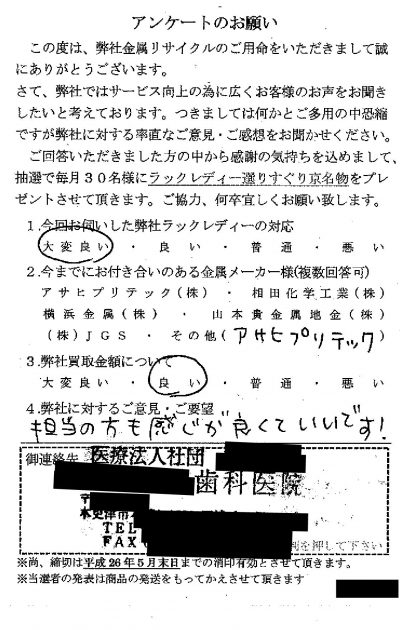 アンケートのお願い
この度は、弊社金属リサイクルのご用命をいただきまして誠
にありがとうございます。
さて、弊社ではサービス向上の為に広くお客様のお声をお聞き
したいと考えております。つきましては何かとご多用の中恐縮
ですが弊社に対する率直なご意見・ご感想をお聞かせください。
ご回答いただきました方の中から感謝の気持ちを込めまして、
抽選で毎月30名様にラックレディー選りすぐり京名物をプレ
ゼントさせて頂きます。ご協力、何卒宜しくお願い致します。
1.今回お伺いした弊社ラックレディーの対応
大変良い ・ 良い ・ 普通 ・ 悪い
2.今までにお付き合いのある金属メーカー様(複数回答可)
アサヒプリテック(株) ・ 相田化学工業(株)
横浜金属(株) ・ 山本貴金属地金(株)
(株)JGS ・ その他(アサヒプリテック)
3.弊社買取金額について
大変良い ・ 良い ・ 普通 ・ 悪い
4.弊社に対するご意見・ご要望
担当の方も感じが良くていいです!
御連絡先 医療法人社団
歯科医院
〒
木更津市
TEL
FAX
を押して下さい
※尚、締切は平成26年5月末日までの消印有効とさせて頂きます。
※当選者の発表は商品の発送をもってかえさせて頂きます